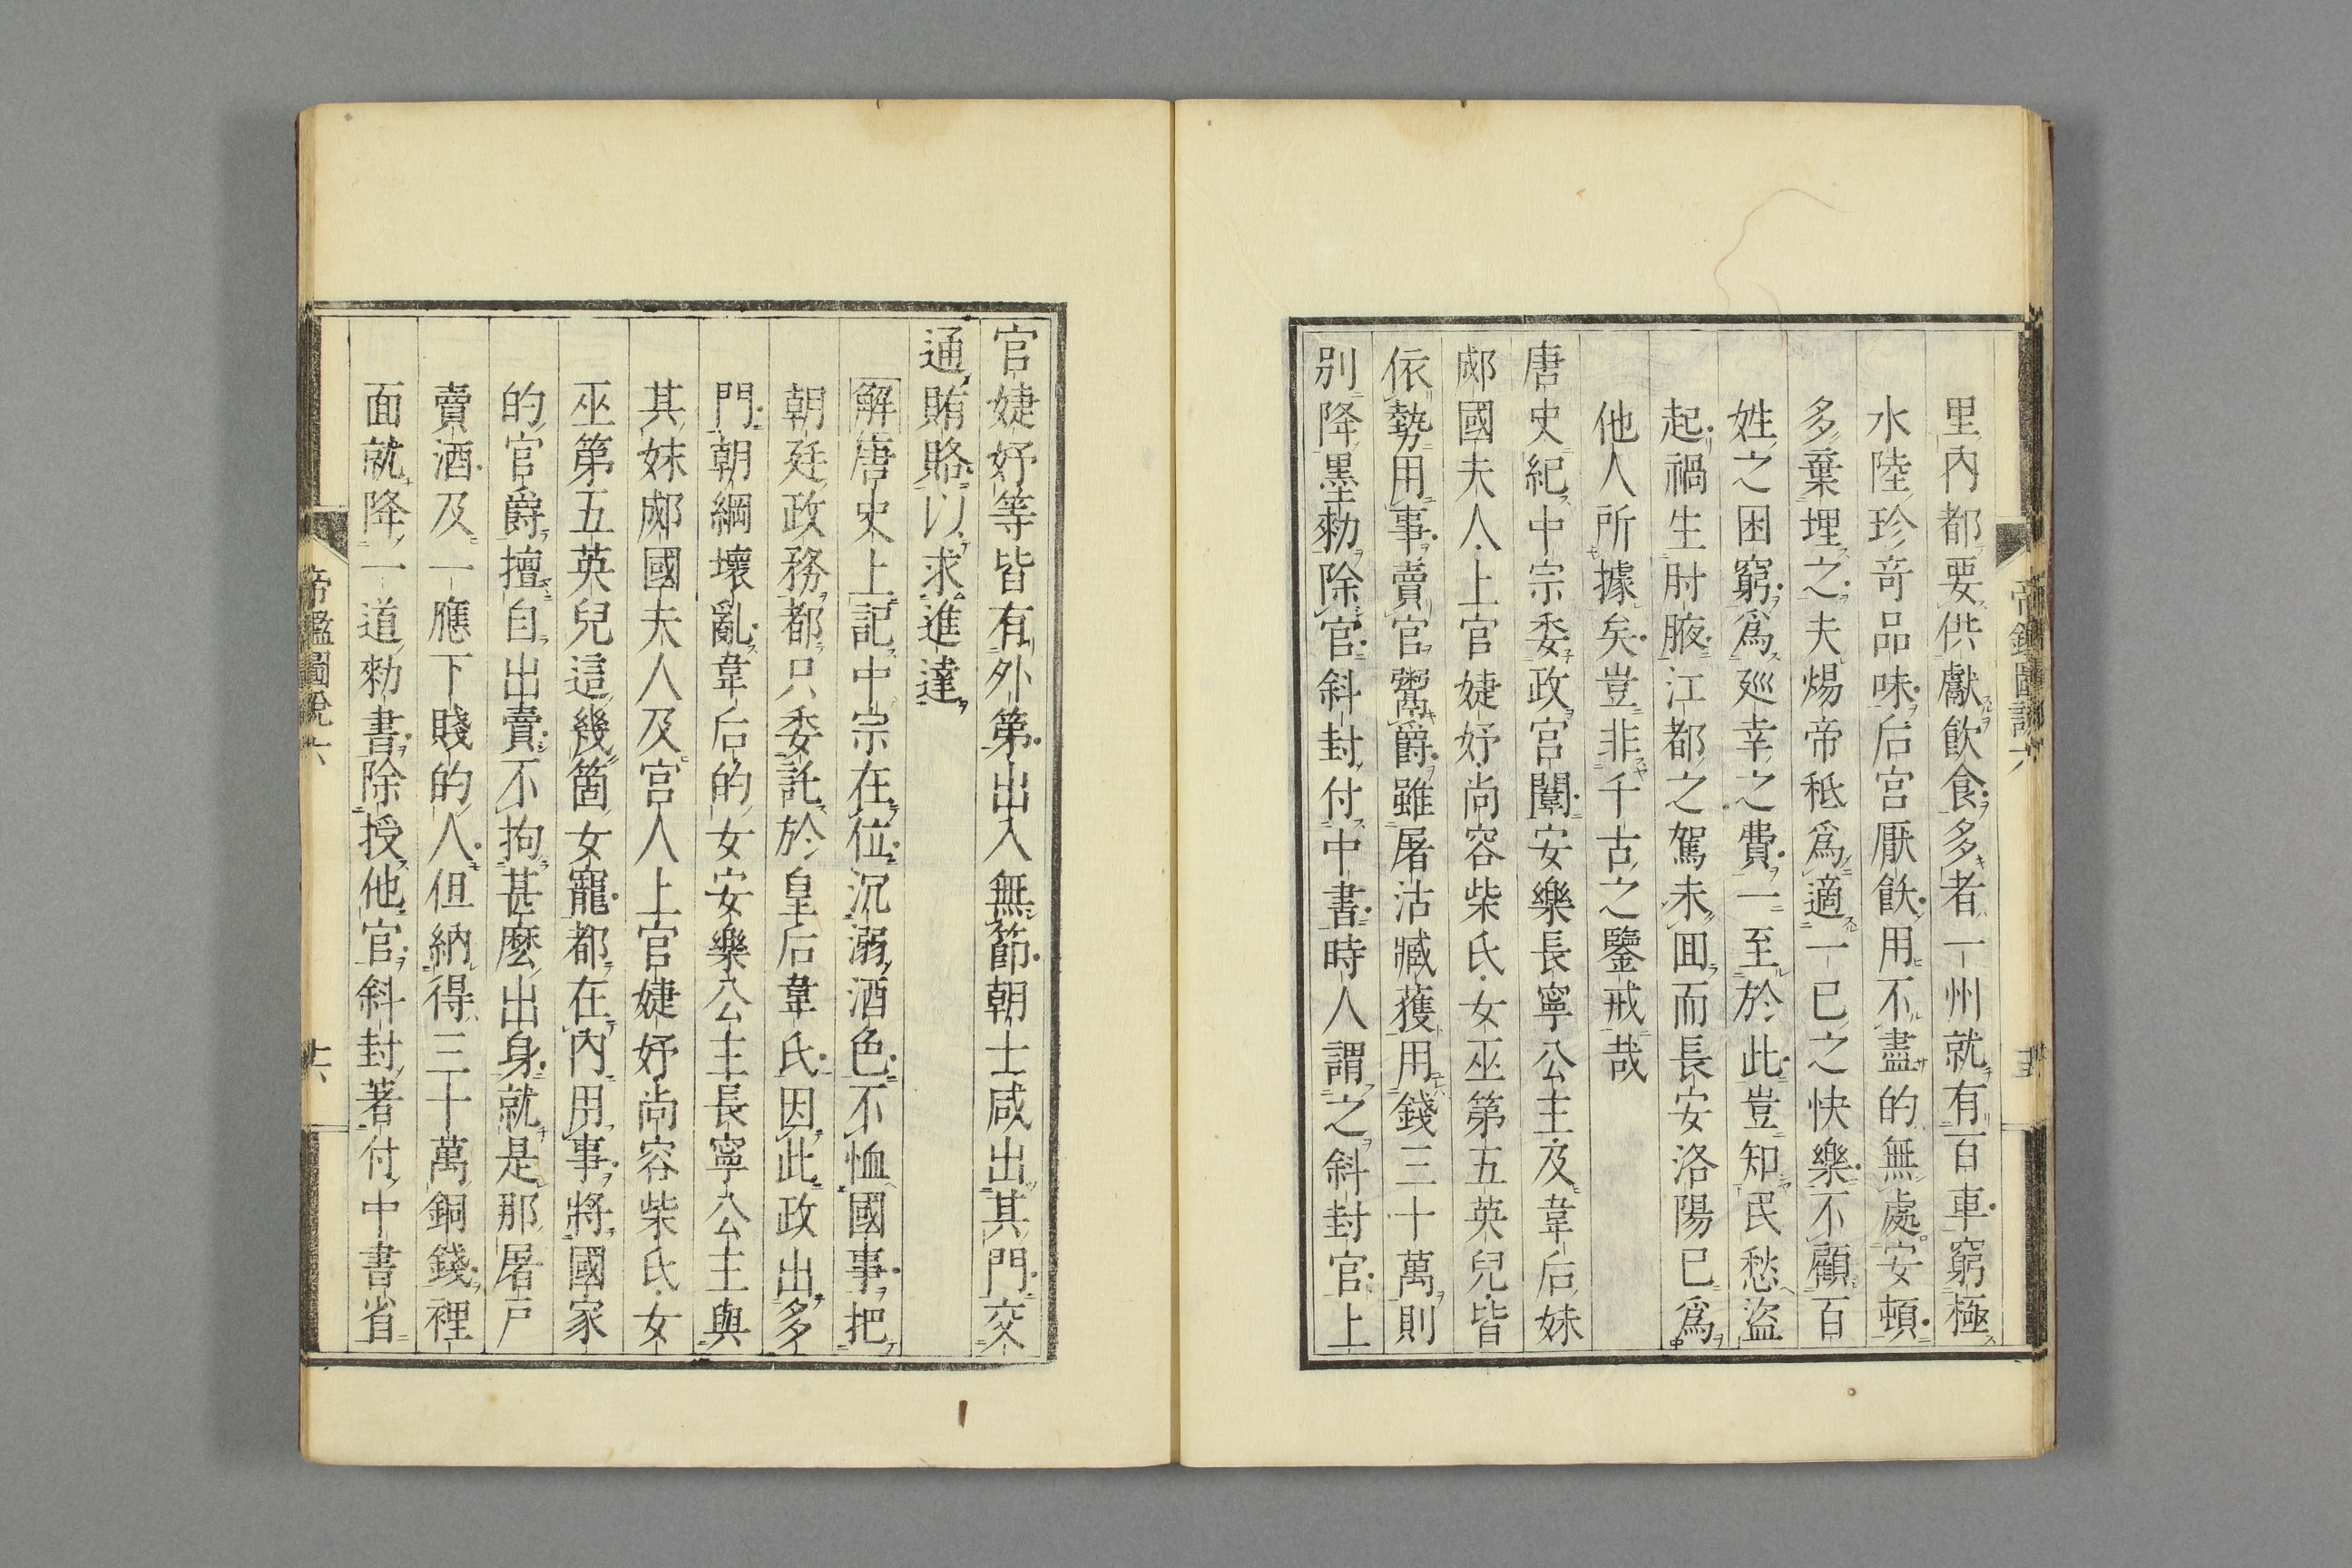 里內都要供獻飲食多者一州就有百車窮極
水陸珍奇品味后宮厭飫用不盡的無處安頓
多棄埋之夫煬帝秪爲適一已之快樂不顧百
姓之困窮爲廵幸之費一至於此豈知民愁盜
起禍生肘腋江都之駕未囬而長安洛陽已爲
他人所據矣豈非千古之鑒戒哉
唐史紀中宗委政宮闈安樂長寧公主及韋后妹
郕國夫人上官婕妤尚容柴氏女巫第五英兒皆
依勢用事賣官鬻爵雖屠沽臧獲用錢三十萬則
別降墨勑除官斜封付中書時人謂之斜封官上
官婕妤等皆有外第出入無節朝士咸出其門交
通賄賂以求進達
解唐史上記中宗在位沉溺酒色不恤國事把
朝廷政務都只委託於皇后韋氏因此政出多
門朝綱壞亂韋后的女安樂公主長寧公主與
其妹郕國夫人及宮人上官婕妤尚容柴氏女
巫第五英兒這幾箇女寵都在內用事將國家
的官爵擅自出賣不拘甚麽出身就是那屠戶
賣酒及一應下賤的人但納得三十萬銅錢裡
面就降一道勑書除授他官斜封著付中書省
帝鑑圖說六